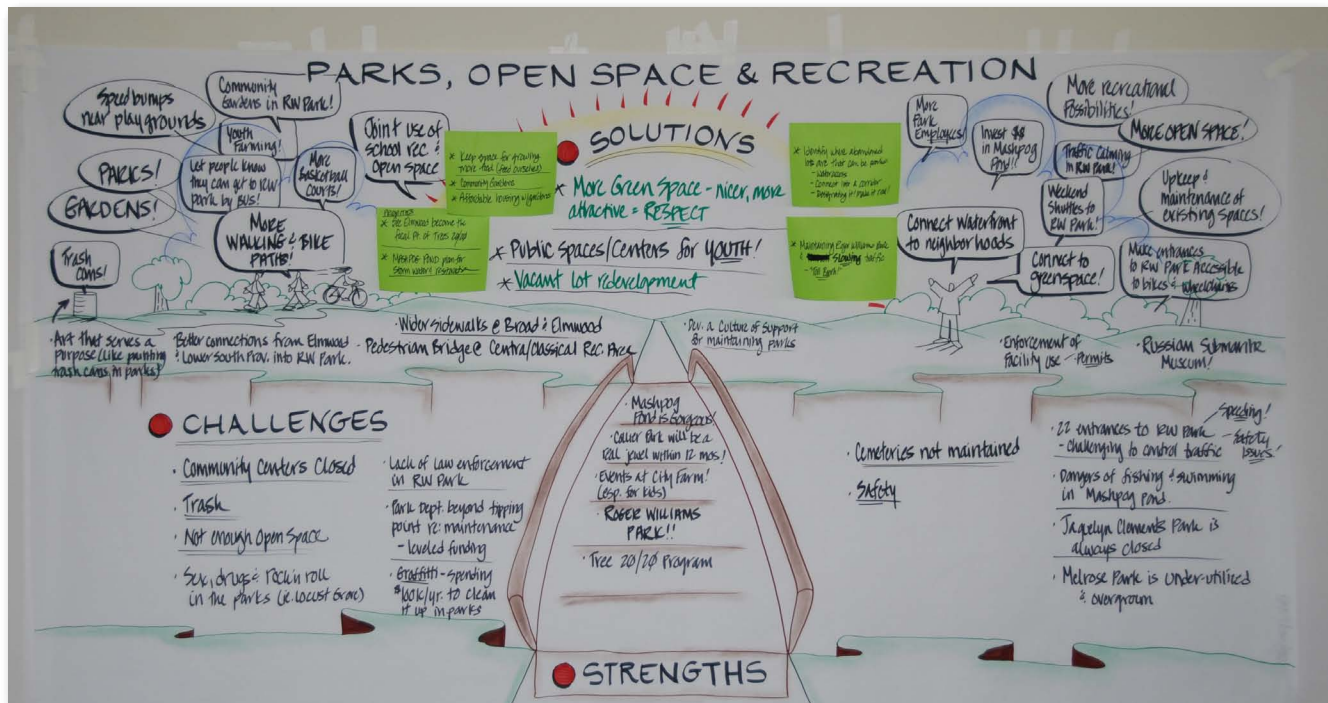 PARKS, OPEN SPACE & RECREATION
Speed bumps
near playgrounds
Community
Gardens in RW Park!
Youth
Farming!
PARKS!
GARDENS!
Let people know
they can get to RW
park by BUS!
More
Basketball
Courts!
Joint use of
school rec. &
open space
MORE
WALKING & BIKE
PATHS!
Trash
cans!
* Keep space for growing
more food (feed ourselves)
* Community Gardens
* Affordable housing w/gardens
* See Elmwood become the
focal pt. of Trees 20/20
* MASHAPOG POND plan for
storm water restoration
SOLUTIONS
* More Green Space - nicer, more
attractive = RESPECT
* Public spaces/Centers for YOUTH!
* Vacant Lot redevelopment
* Identify where abandoned
lots are that can be
- Connect into a corridor
- Designing it/make it cool!
* Maintaining Roger Williams Park
& Slowing traffic
More
Park
Employees!
Invest $$
in Mashpog
Pond!!
More recreational
Possibilities!
MORE OPEN SPACE!
Traffic Calming
in RW Park!
Weekend
Shuttles to
RW Park!
Upkeep &
maintenance of
existing Spaces!
Connect Waterfront
to neighborhoods
Connect to
greenspace!
Make entrances
to RW Park Accessible
to bikes & wheelchairs
· Art that serves a
purpose (like painting
trash cans in parks)
· Better connections from Elmwood
& Lower South Prov. into RW Park.
· Wider Sidewalks @ Broad & Elmwood
· Pedestrian Bridge @ Central/Classical Rec. Area
· Dev. a Culture of Support
for maintaining parks
· Enforcement of
Facility use - Permits
· Russian Submarine
Museum!
CHALLENGES
· Community Centers Closed
· Trash
· Not enough Open Space
· Sex, drugs & rock'n roll
in the parks (ie. Locust Grove)
· Lack of law enforcement
in RW Park
· Park Dept. beyond tipping
point re: maintenance
- leveled funding
· Graffitti - Spending
$100k/yr. to clean
it up in parks
· Mashpog
Pond is Gorgeous!
· Calier Park will be a
Real jewel within 12 mos!
· Events at City Farm!
(esp. for kids)
· ROGER WILLIAMS
PARK!!
· Tree 20/20 Program
· Cemeteries not maintained
· Safety
· 22 entrances to RW Park
- challenging to control traffic
Speeding!
- Safety
Issues!
· Dangers of fishing & swimming
in Mashpog Pond.
· Jacqelyn Clements Park is
always closed
· Melrose Park is under-utilized
& overgrown
STRENGTHS